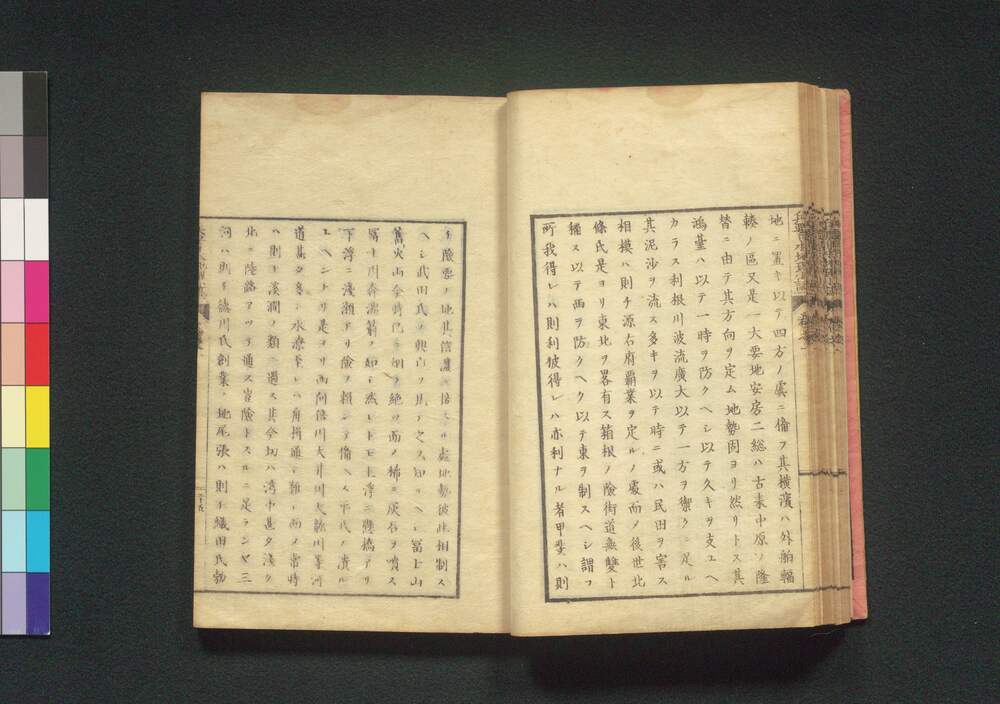 地ニ置キ以テ四方ノ虞ニ備フ其横濱ハ外舶輻
輳ノ區又是一大要地安房二総ハ古来中原ノ隆
替ニ由テ其方向ヲ定ム地勢固ヨリ然リトス其
鴻臺ハ以テ一時ヲ防クヘシ以テ久キヲ支ユヘ
カラス利根川波流廣大以テ一方ヲ禦クニ足ル
其泥沙ヲ流ス多キヲ以テ時ニ或ハ民田ヲ害ス
相模ハ則チ源右府覇業ヲ定ルノ處而メ後世北
條氏是ヨリ東北ヲ畧有ス箱根ノ険街道無雙ト
稱ス以テ西ヲ防クヘク以テ東ヲ制スヘシ謂フ
所我得レハ則利彼得レハ亦利ナル者甲斐ハ則
険要ノ地其信濃ニ信スル處地勢彼此相制ス
ヘシ武田氏ノ興亡ヲ見テ之ヲ知ルヘシ冨士山
舊火山今時已ニ烟ヲ絶ツ而メ稀ニ灰石ヲ噴ス
冨士川奔湍箭ノ如シ然レトモ上浮ニ舩橋アリ
下浮ニ淺瀬アリ険ヲ頼ンテ備ヘス平氏ノ潰ル
ユヘントリ是ヨリ西向信川大井川天龍川等河
道甚タ多シ水潦至レハ舟揖通シ難シ而メ常時
ハ則チ溪澗ノ類ニ過ス其今切ハ湾中甚タ淺ク
北ニ陸路アツテ通ス豈険トスルニ足ランヤ三
河ハ則チ徳川氏創業ノ地尾張ハ則チ織田氏勃